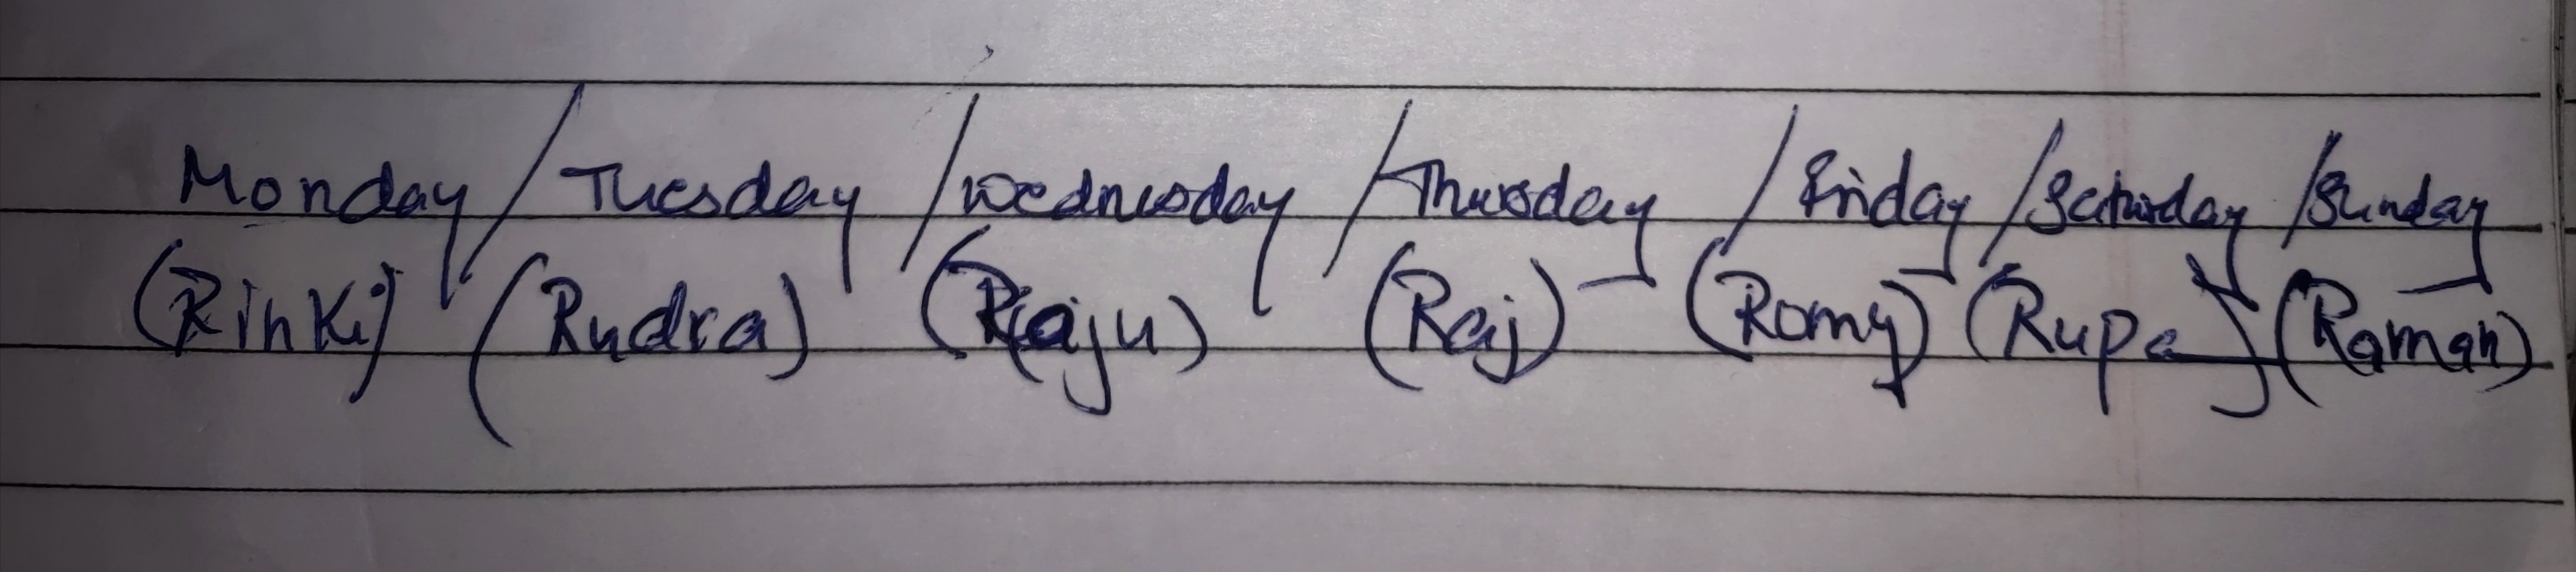 Monday / Tuesday / Wednesday / Thursday / Friday / Saturday / Sunday
(Rinki) (Rudra) (Raju) (Raj) (Romy) (Rupa) (Raman)